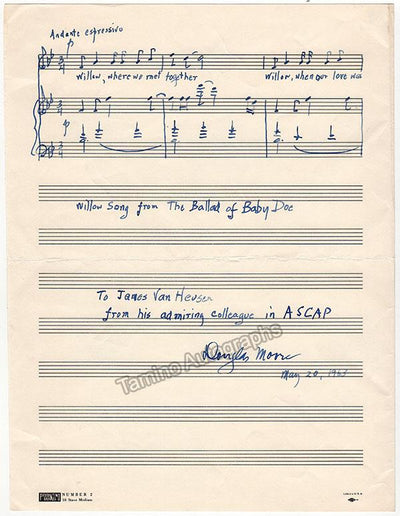 Andante espressivo
p
Willow, where we met together
Willow, when our love was
p
Willow Song from The Ballad of Baby Doe
To James Van Heusen
from his admiring colleague in ASCAP
Tamino Autographs
Douglas Moore
May 20,
NUMBER 2